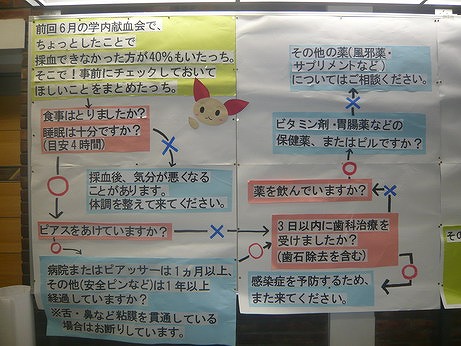 前回6月の学内献血会で、
ちょっとしたことで
採血できなかった方が40%もいたっち。
そこで！事前にチェックしておいて
ほしいことをまとめたっち。
食事はとりましたか？
睡眠は十分ですか？
(目安4時間)
採血後、気分が悪くなる
ことがあります。
体調を整えて来てください。
ピアスをあけていますか？
病院またはピアッサーは1ヵ月以上、
その他(安全ピンなど)は1年以上
経過していますか？
※舌・鼻など粘膜を貫通している
場合はお断りしています。
その他の薬(風邪薬・
サプリメントなど)
についてはご相談ください。
ビタミン剤・胃腸薬などの
保健薬、またはピルですか？
薬を飲んでいますか？
3日以内に歯科治療を
受けましたか？
(歯石除去を含む)
感染症を予防するため、
また来てください。
その